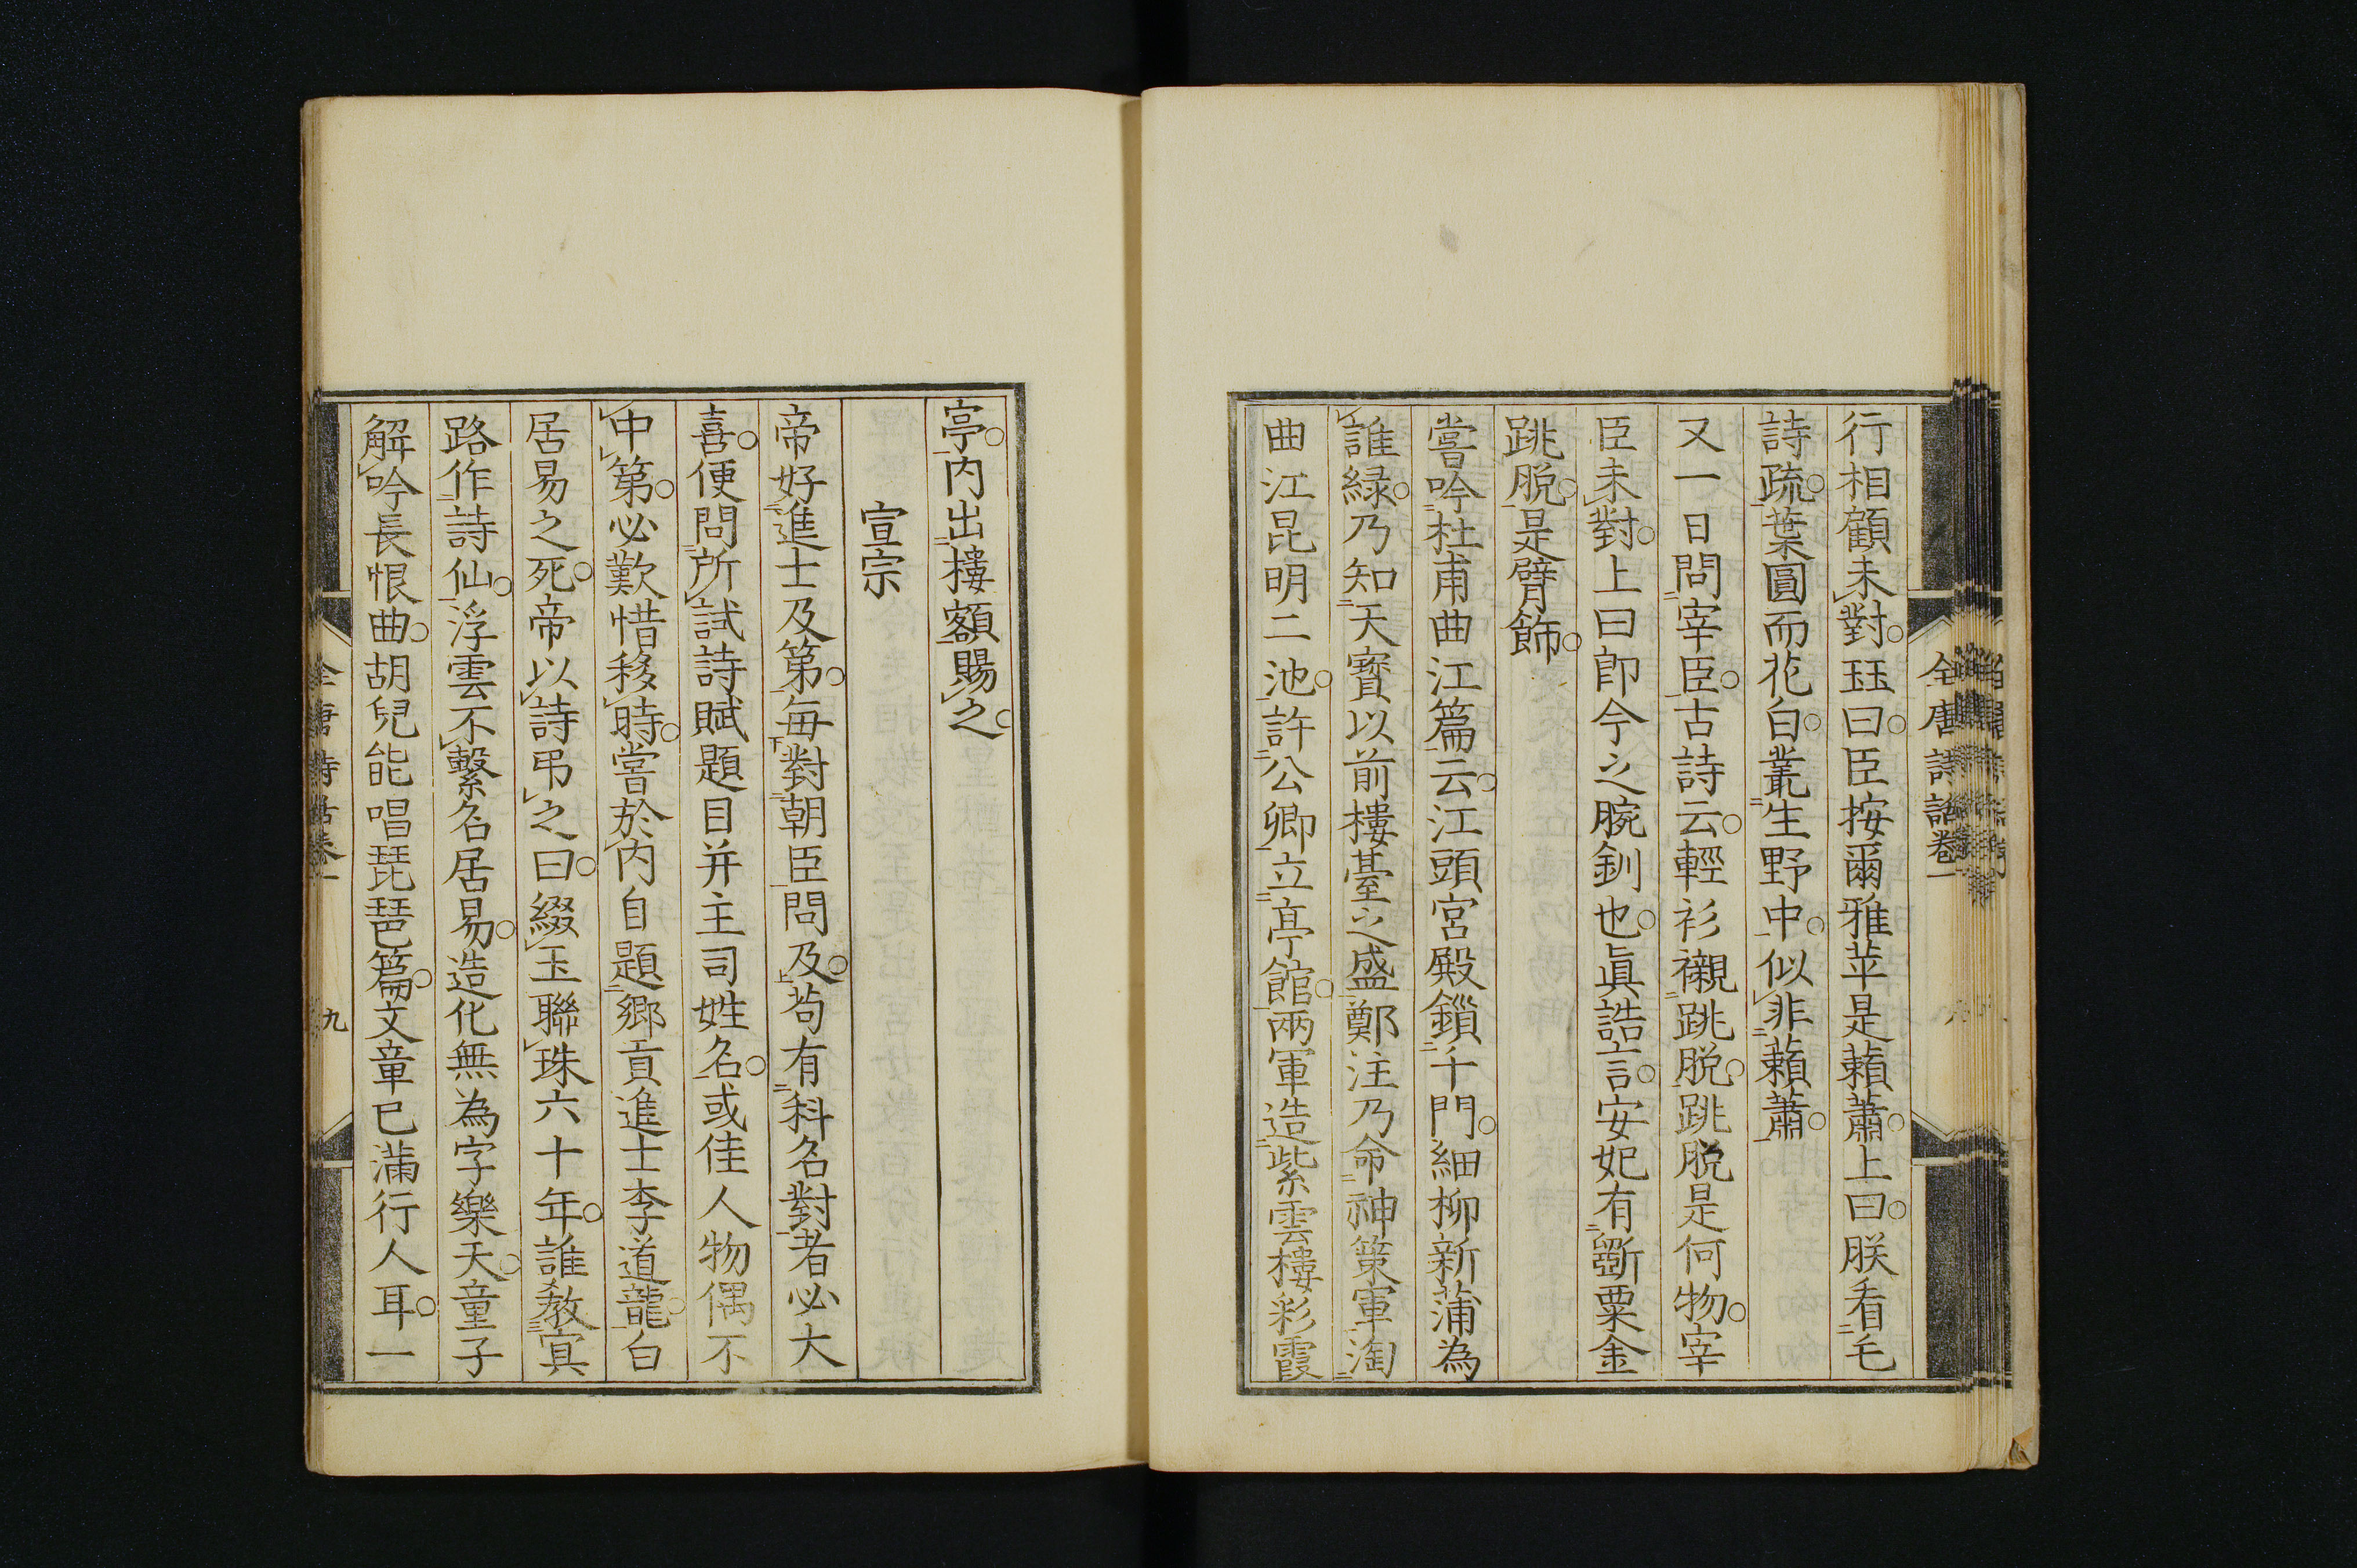 全唐詩話卷一
行相顧未對珏曰臣按爾雅苹是藾蕭上曰朕看毛
詩疏葉圓而花白叢生野中似非藾蕭
又一日問宰臣古詩云輕衫襯跳脱跳脱是何物宰
臣未對上曰即今之腕釧也眞誥言安妃有斵粟金
跳脱是臂飾
嘗吟杜甫曲江篇云江頭宮殿鎻千門細柳新蒲為
誰緑乃知天寳以前樓臺之盛鄭注乃命神策軍淘
曲江昆明二池許公卿立亭館兩軍造紫雲樓彩霞
亭内出樓額賜之
宣宗
帝好進士及第每對朝臣問及苟有科名對者必大
喜便問所試詩賦題目并主司姓名或佳人物偶不
中第必歎惜移時嘗於内自題鄉貢進士李道龍白
居易之死帝以詩弔之曰綴玉聯珠六十年誰教寘
路作詩仙浮雲不繫名居易造化無為字樂天童子
解吟長恨曲胡兒能唱琵琶篇文章已滿行人耳一
全唐詩話卷一
九